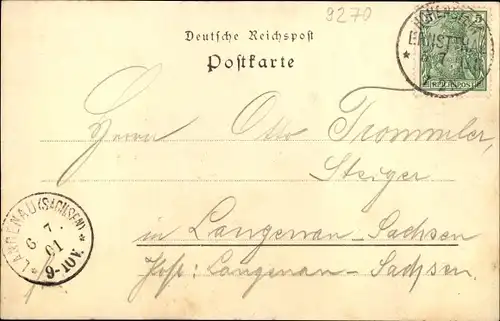 9270
Deutsche Reichspost
Postkarte
5
REICHSPOST
HOHENSTEIN
ERNSTT
Herrn Otto Trommler,
Steiger
in Langenau-Sachsen
Post: Langenau-Sachsen.
* LANGENAU (SACHSEN) *
6 7.
01
9-10V.